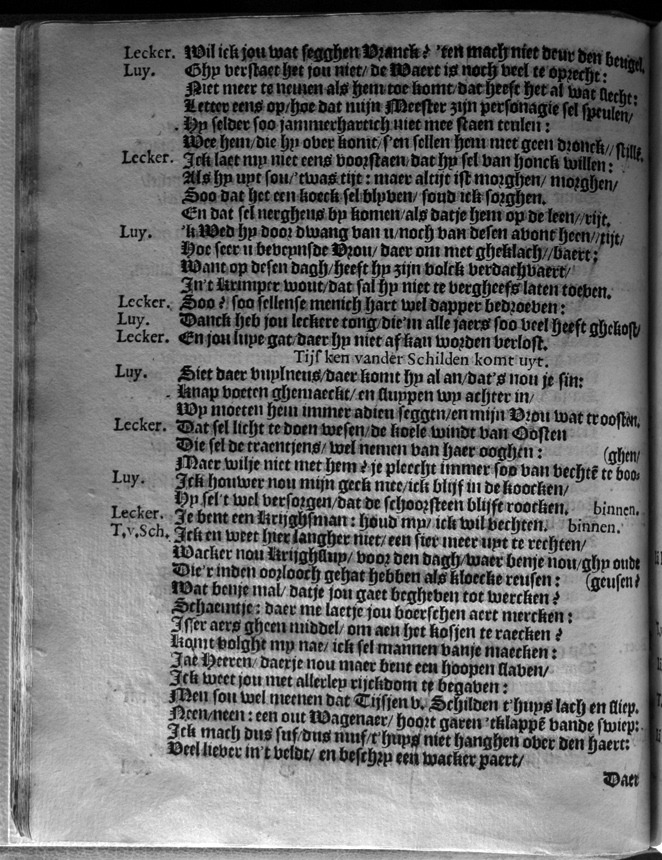 Lecker. Wil ick jou wat segghen Vranck? 'ten mach niet deur den beugel.
Luy. Ghy verstaet het jou niet/ de Waert is noch veel te oprecht:
Niet meer te nemen als hem toe komt/ dat heeft het al wat slecht:
Letter eens op/ hoe dat mijn Meester zijn personagie sel speulen/
Hy selder soo jammerhartich niet mee staen teulen:
Wee hem/ die hy over komt/ s'en sellen hem met geen dronck// stille.
Lecker. Ick laet my niet eens voorstaen/ dat hy sel van honck willen:
Als hy uyt sou/ 'twas tijt: maer altijt ist morghen/ morghen/
Soo dat het een koeck sel blyven/ soud ick sorghen.
En dat sel nerghens by komen/ als datje hem op de leen// rijt.
Luy. 'k Wed hy door dwang van u/ noch van desen avont heen// tijt/
Hoe seer u beveynsde Vrou/ daer om met gheklach// baert:
Want op desen dagh/ heeft hy zijn volck verdachvaert/
In't Krimper wout/ dat sal hy niet te vergheefs laten toeven.
Lecker. Soo? soo sellense menich hart wel dapper bedroeven:
Luy. Danck heb jou leckere tong/ die'm alle jaers soo veel heeft ghekost/
Lecker. En jou luye gat/ daer hy niet af kan worden verlost.
Tijsken vander Schilden komt uyt.
Luy. Siet daer vuylneus/ daer komt hy al an/ dat's nou je sin:
Knap voeten ghemaeckt/ en sluppen wy achter in/
Wy moeten hem immer adieu seggen/ en mijn Vrou wat troosten.
Lecker. Dat sel licht te doen wesen/ de koele windt van Oosten
Die sel de traentjens/ wel nemen van haer ooghen: (ghen/
Maer wilje niet met hem? je pleecht immer soo van vechtē te boo-
Luy. Ick houwer nou mijn geck mee/ ick blijf in de koocken/
Hy sel't wel versorgen/ dat de schoorsteen blijft roocken. binnen.
Lecker. Je bent een Krijghsman: houd my/ ick wil vechten. binnen.
T.v.Sch. Ick en weet hier langher niet/ een sier meer uyt te rechten/
Wacker nou Krijghsluy/ voor den dagh/ waer benje nou/ ghy oude
Die'r inden oorlooch gehat hebben als kloecke reusen: (geusen?
Wat benje mal/ datje jou gaet begheven tot wercken?
Schaemtje: daer me laetje jou boerschen aert mercken:
Isser aers gheen middel/ om aen het kosjen te raecken?
Komt volght my nae/ ick sel mannen vanje maecken:
Jae Heeren/ daerje nou maer bent een hoopen slaven/
Ick weet jou met allerley rijckdom te begaven:
Men sou wel meenen dat Tijsjen v. Schilden t'huys lach en sliep.
Neen/ neen: een out Wagenaer/ hoort garen 'tklappē vande swiep:
Ick mach dus suf/ dus muf/ t'huys niet hanghen over den haert:
Veel liever in't veldt/ en beschry een wacker paert/
Daer